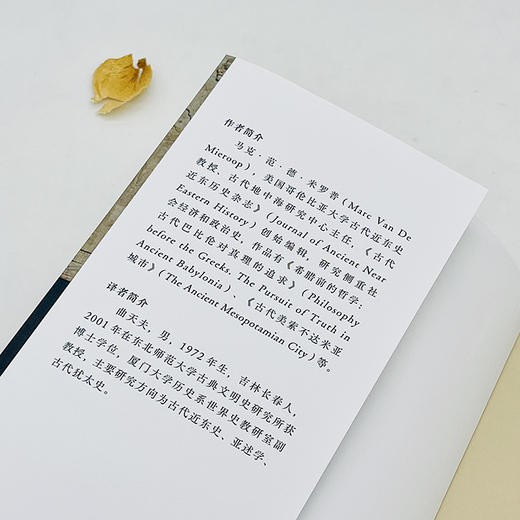 作者简介
马克·范·德·米罗普（Marc Van De
Mieroop），美国哥伦比亚大学古代近东史
教授、古代地中海研究中心主任，《古代
近东历史杂志》（Journal of Ancient Near
Eastern History）创始编辑，研究侧重社
会经济和政治史，作品有《希腊前的哲学：
古代巴比伦对真理的追求》（Philosophy
before the Greeks. The Pursuit of Truth in
Ancient Babylonia）、《古代美索不达米亚
城市》（The Ancient Mesopotamian City）等。
译者简介
曲天夫，男，1972年生，吉林长春人，
2001年在东北师范大学古典文明史研究所获
博士学位，厦门大学历史系世界史教研室副
教授，主要研究方向为古代近东史、亚述学、
古代犹太史。